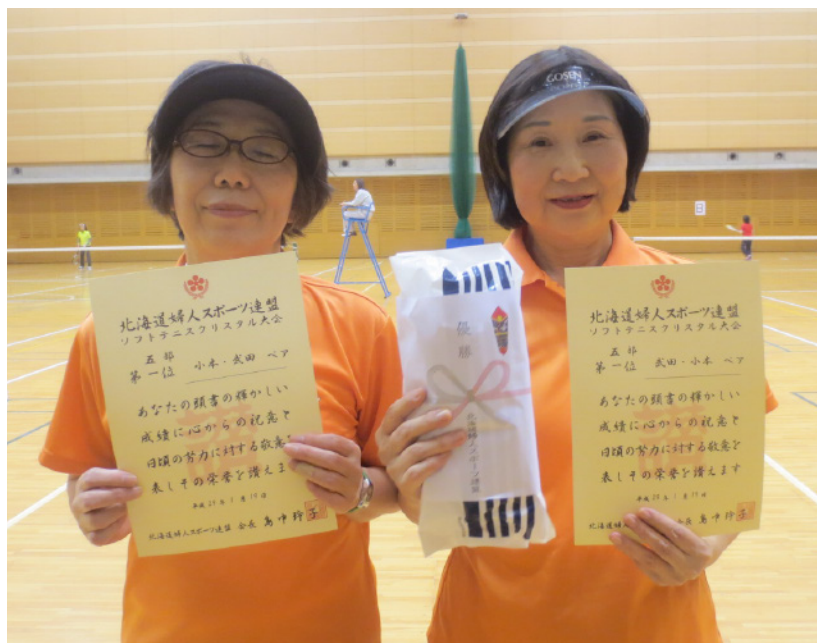 GOSEN
北海道婦人スポーツ連盟
ソフトテニスクリスタル大会
五部
第一位 小本・武田 ペア
あなたの顕書の輝かしい
成績に心からの祝意と
日頃の努力に対する敬意を
表しその栄誉を讃えます
北海道婦人スポーツ連盟 会長
優勝
北海道婦人スポーツ連盟
北海道婦人スポーツ連盟
ソフトテニスクリスタル大会
五部
第一位 武田・小本 ペア
あなたの顕書の輝かしい
成績に心からの祝意と
日頃の努力に対する敬意を
表しその栄誉を讃えます
北海道婦人スポーツ連盟 会長